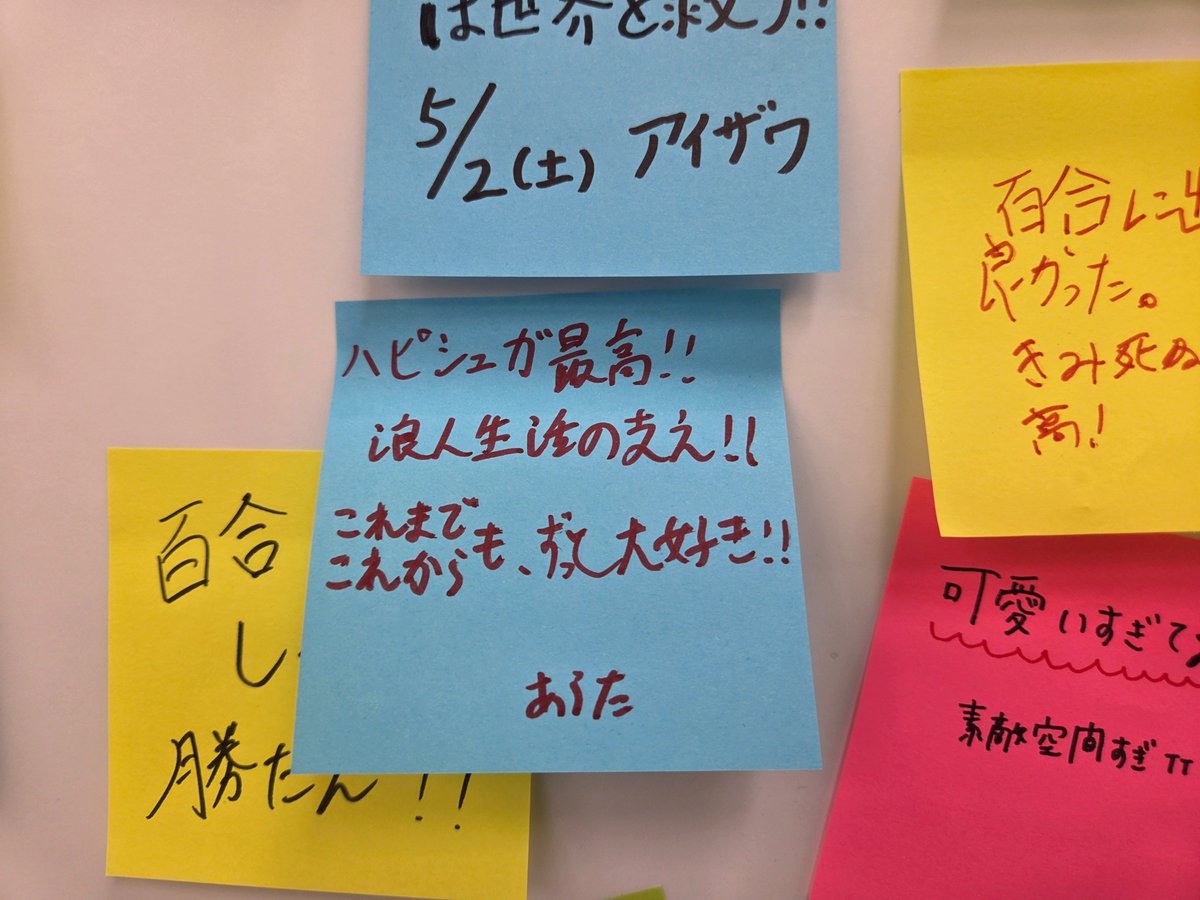 は世界を救う!!
5/2(土) アイザワ
ハピシュガ最高!!
浪人生活の支え!!
これまで
これからも、ずっと大好き!!
あらた
百合
し
勝たん!!
百合に出
良かった。
きみ死ぬ
高!
可愛いすぎて
素敵空間すぎTT